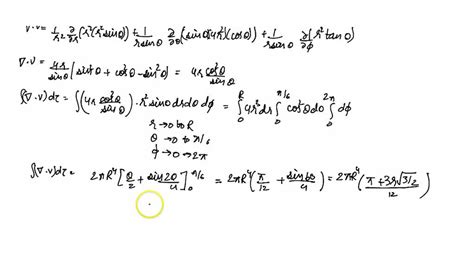 ∇·v = 1/r² ∂/∂r (r² (r² sinθ)) + 1/(r sinθ) ∂/∂θ (sinθ (4r²) (cosθ)) + 1/(r sinθ) ∂/∂φ (r² tanθ)
∇·v = 4r/sinθ [sin²θ + cos²θ - sin²θ] = 4r cos²θ/sinθ
∫(∇·v)dτ = ∫(4r cos²θ/sinθ)·r² sinθ dr dθ dφ = ∫₀ᴿ 4r³ dr ∫₀^(π/6) cos²θ dθ ∫₀^(2π) dφ
r → 0 to R
θ → 0 to π/6
φ → 0 → 2π
∫(∇·v)dτ = 2πR⁴ [θ/2 + sin2θ/4]₀^(π/6) = 2πR⁴ (π/12 + sin60/4) = 2πR⁴ (π + 3√3/2)/12